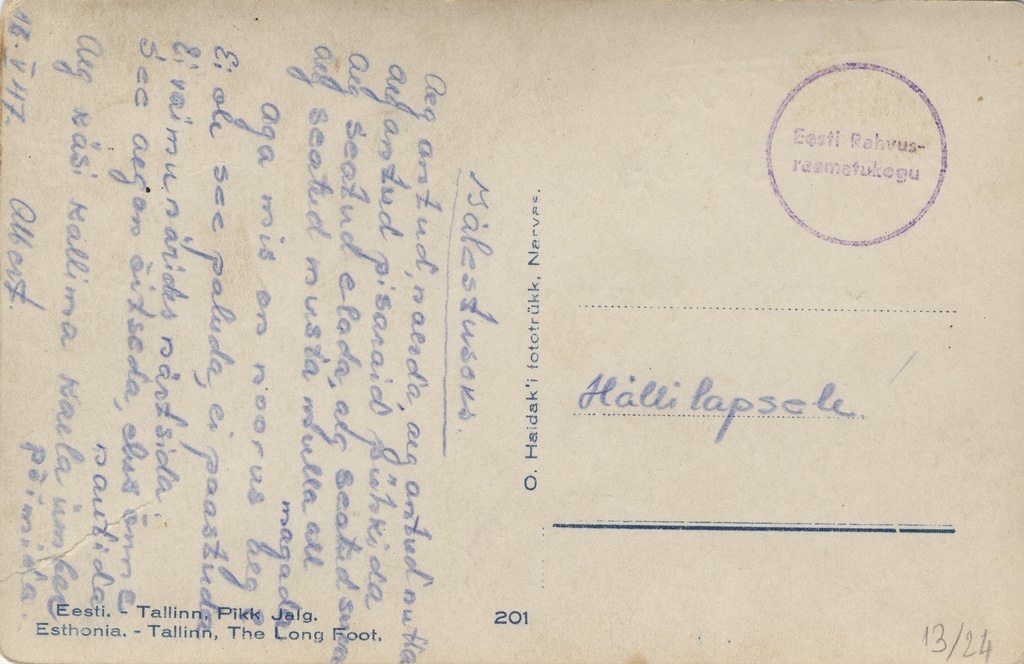 Mälestuseks.
Aeg antud naerda, aeg antud nutta
aeg antud pisaraid pühkida
aeg seatud elada, aeg seatud surra
aeg seatud musta mulla all
magada
Aga mis on noorus aeg
Ei ole see paluda, ei paastuda
Ei vaimu närides närtsida
See aeg on õitseda, elus õnne
nautida
Aeg käsi kallima kaela ümber
põimida.
18. V 47. Albert.
O. Haidak'i fototrükk, Narvas.
Eesti Rahvus-
raamatukogu
Hällilapsele
Eesti. - Tallinn, Pikk Jalg.
Esthonia. - Tallinn, The Long Foot.
201
13/24